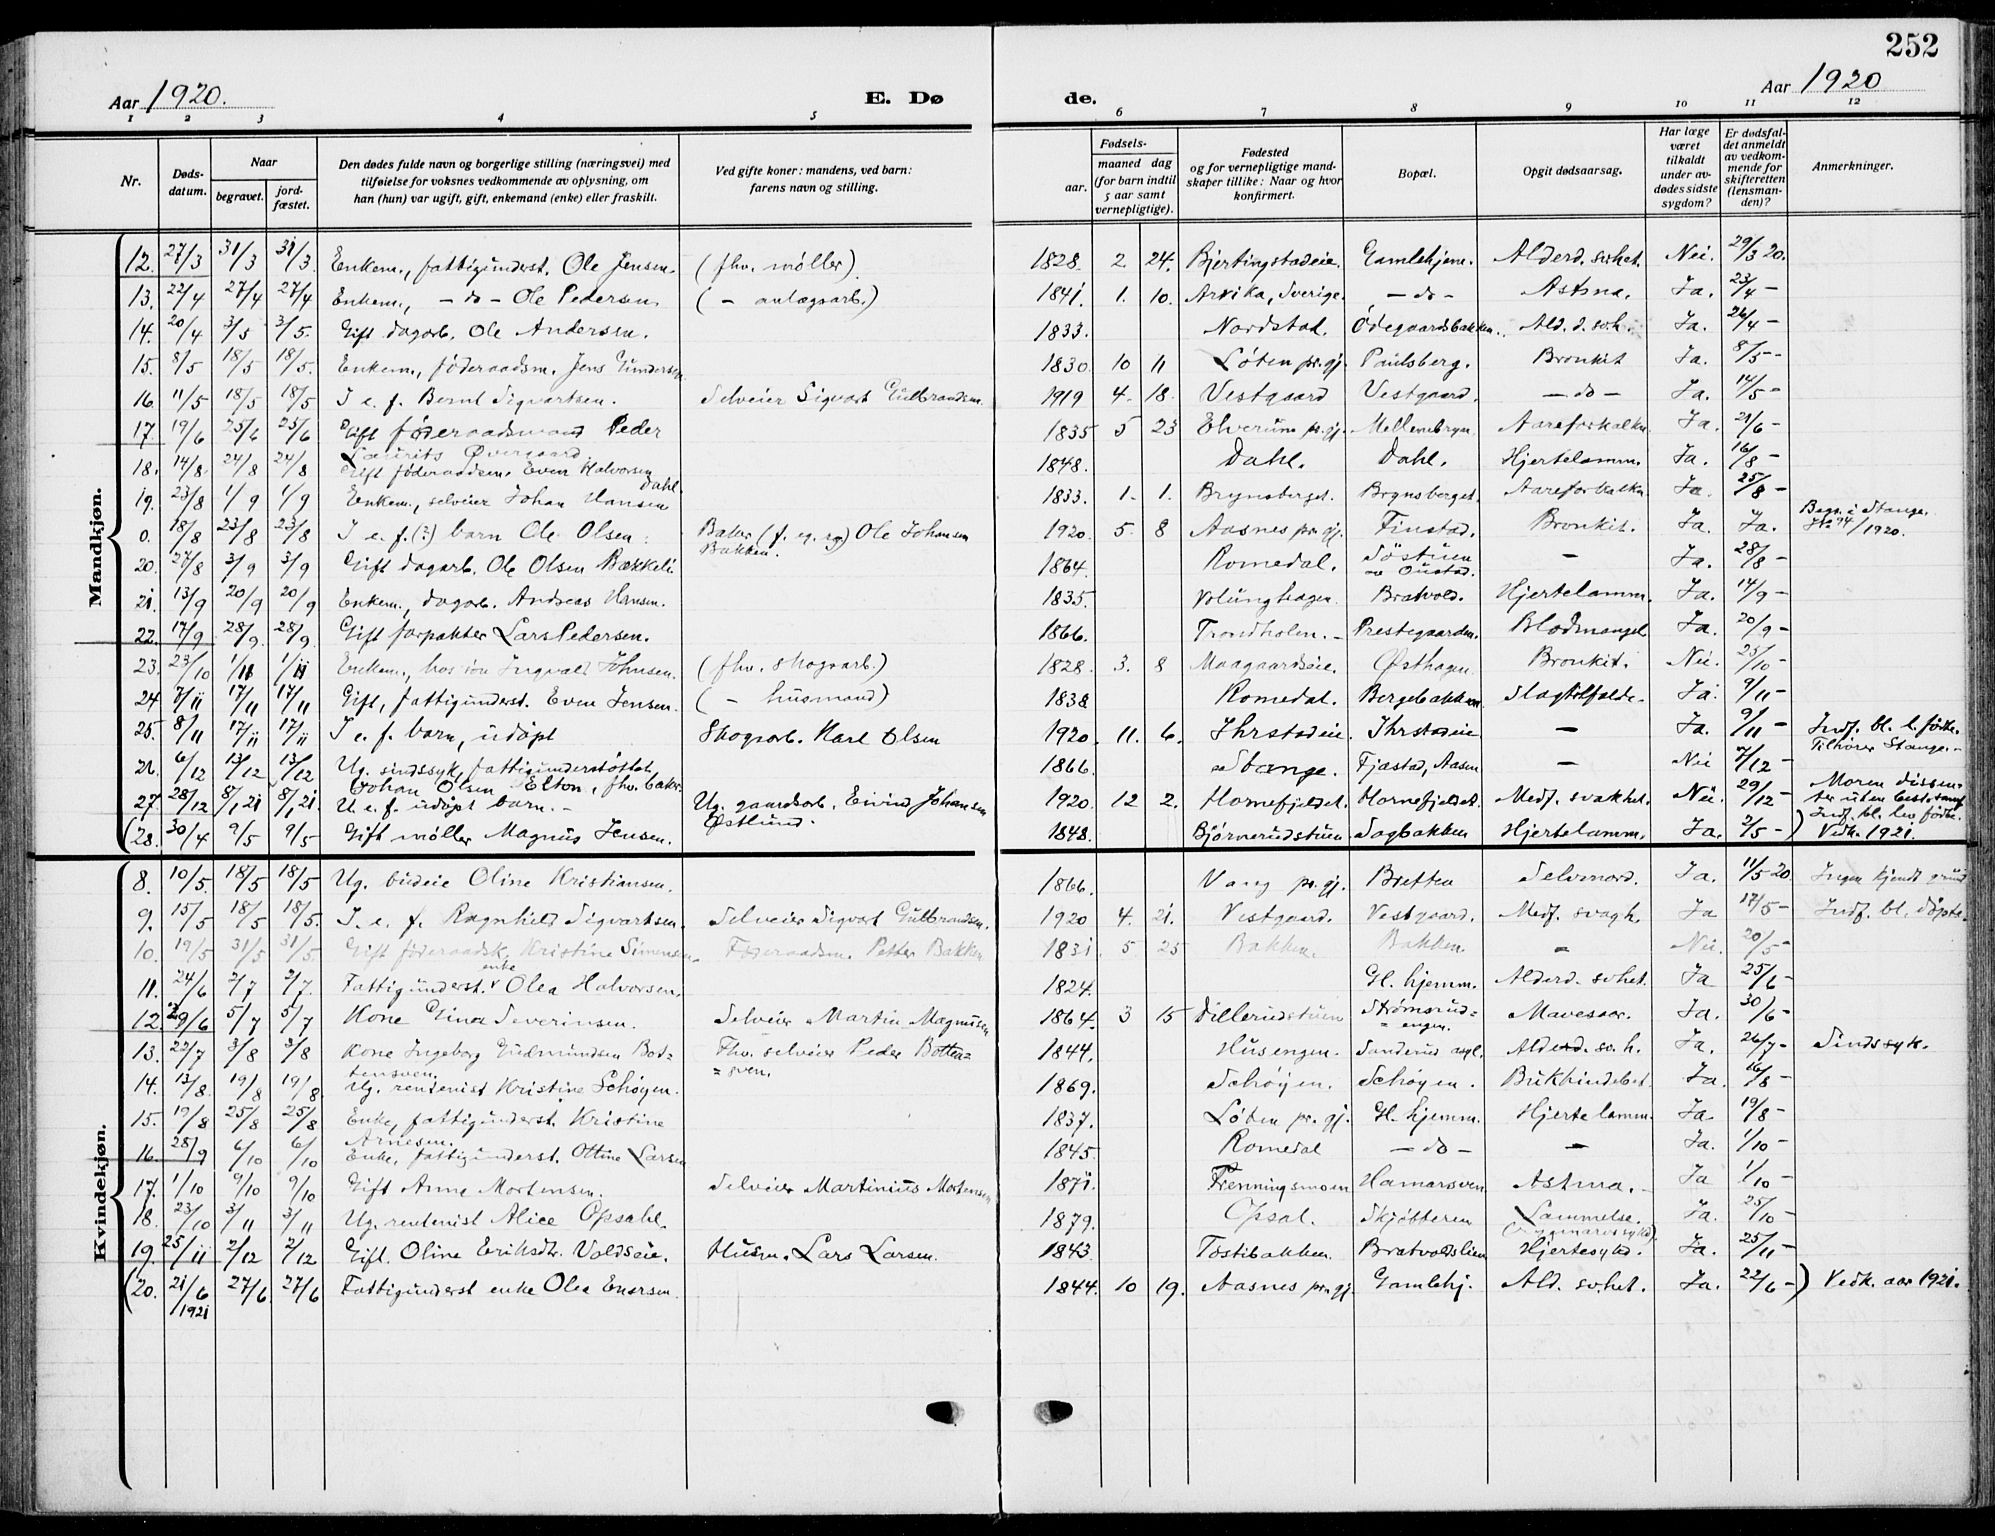 252
Aar 1920. E. Dø de. Aar 1920
1 2 3 4 5 6 7 8 9 10 11 12
Nr. Døds-datum. Naar begravet. jord-fæstet. Den dødes fulde navn og borgerlige stilling (næringsvei) med tilføielse for voksnes vedkommende av oplysning, om han (hun) var ugift, gift, enkemand (enke) eller fraskilt. Ved gifte koner: mandens, ved barn: farens navn og stilling. Fødsels- aar. maaned dag (for barn indtil 5 aar samt vernepligtige). Fødested og for vernepligtige mand-skaper tillike: Naar og hvor konfirmert. Bopæl. Opgit dødsaarsag. Har læge været tilkaldt under av-dødes sidste sygdom? Er dødsfal-det anmeldt av vedkom-mende for skifteretten (lensman-den)? Anmerkninger.
Mandkjøn.
12. 27/3 31/3 31/3 Enkem., fattigunderst. Ole Jensen. (fhv. møller) 1828. 2. 24. Bjertingstadeie. Gamlehjem. Alderd. svhet. Nei. 29/3 20.
13. 22/4 27/4 27/4 Enkem., - do - Ole Pedersen. ( - anlægsarb.) 1841. 1. 10. Arvika, Sverige. - do - Astma. Ja. 23/4 -
14. 20/4 3/5 3/5. Gift dagarb. Ole Andersen. 1833. Nordstad. Ødegaardsbakken. Ald. d. svh. Ja. 26/4 -
15. 8/5 18/5 18/5. Enkem., føderaadsm. Jens Gundersen 1830. 10 11 Løten pr.gj. Paulsberg. Bronkit Ja. 8/5 -
16. 11/5 18/5 18/5 I e. f. Bernt Sigvartsen. Selveier Sigvart Gulbrandsen. 1919 4. 18. Vestgaard Vestgaard. - do - Ja. 14/5 -
17. 19/6 25/6 25/6 Gift føderaadsmand Peder Laurits Overgaard. 1835 5 23 Elverum pr.gj. Aareforkalkn. Ja. 21/6 -
18. 14/8. 24/8 24/8 Gift føderaadsm. Even Halvorsen Dahl. 1848. Dahl. Dahl. Hjertelamm. Ja. 16/8 -
19. 23/8 1/9 1/9 Enkem., selveier Johan Hansen 1833. 1. 1. Brynsberget. Brynsberget. Aareforkalkn Ja. 25/8 -
0. 18/8 23/8 23/8 I e. f. (?) barn Ole Olsen. Baker (f. eg. rg) Ole Johansen Bakken. 1920. 5. 8 Aasnes pr.gj. Finstad. Bronkit. Ja. Ja. Begr. i Stange. No 94/1920.
20. 27/8 3/9 3/9 Gift dagarb. Ole Olsen Bækkeli 1864. Romedal. - Ja. 28/8 -
21. 13/9 20/9 20/9 Enkem., dagarb. Andreas Hansen. 1835. Bratvold. Hjertelamm. Ja. 14/9 -
22. 17/9 28/9. 28/9. Gift forpakter Lars Pedersen. 1866. Trondholen. - Prestegaarden. Blodmangel Ja. 20/9 -
23. 23/10 1/11 1/11 Enkem., hos søn Ingvald Johnsen. (fhv. skogsarb.) 1828. 3. 8 Maagaardseie. Østhagen. Bronkit. Nei. 25/10 -
24 7/11 17/11 17/11 Gift, fattigunderst. Even Jensen. ( - husmand) 1838. Romedal. Bergebakken Slagtilfælde. Ja. 9/11 -
25. 8/11 17/11 17/11 I e. f. barn, udøpt Skogsarb. Karl Olsen 1920. 11. 6. Ihrstadeie. Ihrstadeie - Ja. 9/11 - Indf. bl. l. fødte. Tilhører Stange. -
26. 6/12 13/12 13/12 Ug. sindssyk, fattigunderstøttet, Johan Olsen Elton, fhv. baker. 1866. Stange. Fjæstad, Aasen - Nei 7/12 -
27. 28/12 8/1 21 8/1 21 U. e. f. udøpt barn. - Ug. gaardsarb. Eivind Johansen Østlund. 1920. 12 2. Hornefjeldet. Hornefjeldet. Medf. svakhet. Nei. 29/12 - Moren dissenter uten best. samf. Indf. bl. lev. fødte.
(28. 30/4 9/5 9/5 Gift møller Magnus Jensen. 1848. Bjørnerudstuen Sagbakken Hjertelamm. Ja. 2/5 -) Vedk. 1921.
Kvindekjøn.
8. 10/5. 18/5 18/5 Ug. budeie Oline Kristiansen. 1866. Vang pr.gj. Bretten Selvmord. Ja. 11/5 20 Ingen kjendt grund
9. 15/5 18/5 18/5. I. e. f. Ragnhild Sigvartsen. Selveier Sigvart Gulbrandsen. 1920 4. 21. Vestgaard. Vestgaard. Medf. svagh. Ja 17/5 - Indf. bl. døpte.
10. 19/5 31/5 31/5 Gift føderaadsk. Kristine Simensen. Føderaadsm. Petter Bakken 1831. 5 25 Bakken. Bakken - Nei. 20/5 -
11. 24/6 2/7 2/7. Fattigunderst. enke Olea Halvorsen. 1824. Gl. hjemm. Alderd. svhet. Ja 25/6 -
12 29/6 5/7 5/7 Kone Gina Severinsen. Selveier Martin Magnusen 1864. 3 15 Dillerudstuen Strømsrud-engen. Mavesaar. Ja. 30/6 -
13. 22/7 3/8 3/8 Kone Ingeborg Gudmundsen Bot-tensven. Fhv. selveier Peder Botten-sven. 1844. Husengen. Sanderud asyl. Alderd. sv.h. Ja. 26/7 - Sindssyk.
14. 13/8. 19/8 19/8. Ug. rentenist Kristine Schøyen. 1869. Schøyen. Schøyen. Bukhindebet. Ja. 16/8 -
15. 19/8 25/8 25/8 Enke, fattigunderst. Kristine Arnesen. 1837. Løten pr. gj. Gl. hjemm. Hjertelamm. Ja 19/8 -
16. 28/9 6/10 6/10 Enke, fattigunderst. Ottine Larsen 1845. Romedal - do - - Ja. 1/10 -
17. 1/10 9/10 9/10 Gift Anne Mortensen. Selveier Martinius Mortensen 1871. Frenningsmoen Hamarsven Astma. Ja 1/10 -
18. 23/10 3/11 3/11 Ug. rentenist Alice Opsahl. 1879. Opsal. Skjøtteren Lammelse. (rygmarvssykd) Ja. 25/10 -
19. 25/11 2/12 2/12 Gift. Oline Eriksdtr. Voldseie. Husm. Lars Larsen. 1843. Tostibakken. Bratvoldslien Hjertesykd. Ja. 25/11 -
(20. 21/6 1921 27/6 27/6 Fattigunderst enke Olea Enersen. 1844. 10 19. Aasnes pr.gj. Gamlehj. Ald. sv.het. Ja. 22/6 -) Vedk. aar 1921.